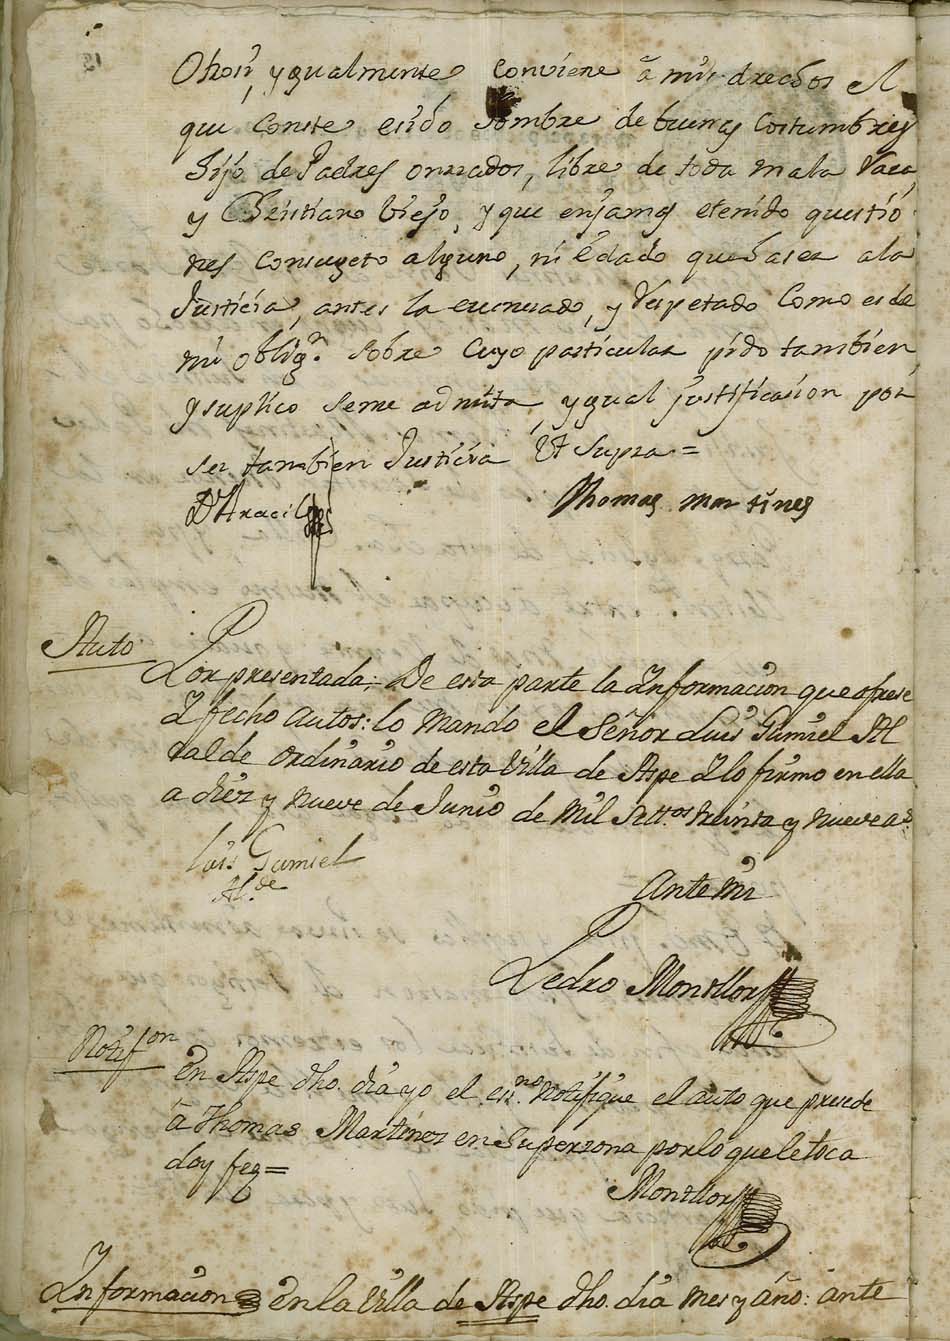 Otrosi, ygualmente conviene â mis drechos el
que conste esido hombre de buenas Costumbres
hijo de Padres onrrados, libre de toda mala Raza,
y Christiano Viejo, y que enjamas etenido questio
nes Consugeto alguno, ni êdado quehaser ala
Justicia, antes la evenerado, y respetado Como es de
mi oblig.n Sobre Cuyo particular pido tambien
y suplico seme admita, ygual justificasion por
ser tambien Justicia Ut Supra =
D.r Aracil Thomas Martines
Auto
Por presentada; De esta parte la Informacion que ofrese
I fecho Autos: lo Mando el Señor Luis Gumiel Al
calde ordinario de esta Villa de Aspe I lo firmo en ella
a diez y nueve de Junio de Mil Sett.os treinta y nueve a.s
Luis Gumiel
Al.de
Ante Mi
Pedro Montllor
Notif.on
En Aspe dho. dia yo el es.no Notifique el auto que presede
â Thomas Martinez en Su perzona por lo que le toca
doy fee =
Montllor
Informacion En la Villa de Aspe dho. dia Mes y Año: ante